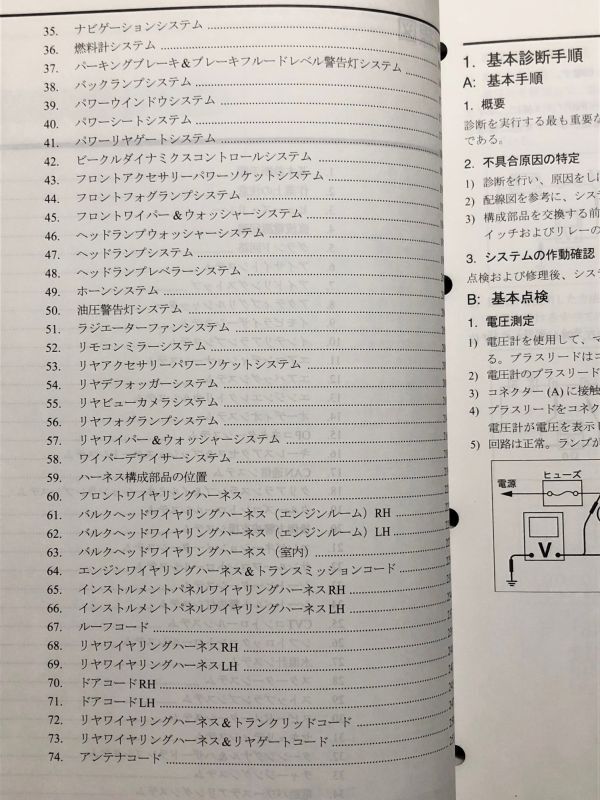 35. ナビゲーションシステム
36. 燃料計システム
37. パーキングブレーキ＆ブレーキフルードレベル警告灯システム
38. バックランプシステム
39. パワーウインドウシステム
40. パワーシートシステム
41. パワーリヤゲートシステム
42. ビークルダイナミクスコントロールシステム
43. フロントアクセサリーパワーソケットシステム
44. フロントフォグランプシステム
45. フロントワイパー＆ウォッシャーシステム
46. ヘッドランプウォッシャーシステム
47. ヘッドランプシステム
48. ヘッドランプレベラーシステム
49. ホーンシステム
50. 油圧警告灯システム
51. ラジエーターファンシステム
52. リモコンミラーシステム
53. リヤアクセサリーパワーソケットシステム
54. リヤデフォッガーシステム
55. リヤビューカメラシステム
56. リヤフォグランプシステム
57. リヤワイパー＆ウォッシャーシステム
58. ワイパーデアイサーシステム
59. ハーネス構成部品の位置
60. フロントワイヤリングハーネス
61. バルクヘッドワイヤリングハーネス（エンジンルーム）RH
62. バルクヘッドワイヤリングハーネス（エンジンルーム）LH
63. バルクヘッドワイヤリングハーネス（室内）
64. エンジンワイヤリングハーネス＆トランスミッションコード
65. インストルメントパネルワイヤリングハーネスRH
66. インストルメントパネルワイヤリングハーネスLH
67. ルーフコード
68. リヤワイヤリングハーネスRH
69. リヤワイヤリングハーネスLH
70. ドアコードRH
71. ドアコードLH
72. リヤワイヤリングハーネス＆トランクリッドコード
73. リヤワイヤリングハーネス＆リヤゲートコード
74. アンテナコード
1. 基本診断手順
A: 基本手順
1. 概要
診断を実行する最も重要な
である。
2. 不具合原因の特定
1) 診断を行い、原因をし
2) 配線図を参考に、シス
3) 構成部品を交換する前
イッチおよびリレーの
3. システムの作動確認
点検および修理後、シス
B: 基本点検
1. 電圧測定
1) 電圧計を使用して、
る。ブラスリードは
2) 電圧計のプラスリード
3) コネクター (A) に接触
4) プラスリードをコネク
電圧計が電圧を表示し
5) 回路は正常。ランプが
電源
ヒューズ
V